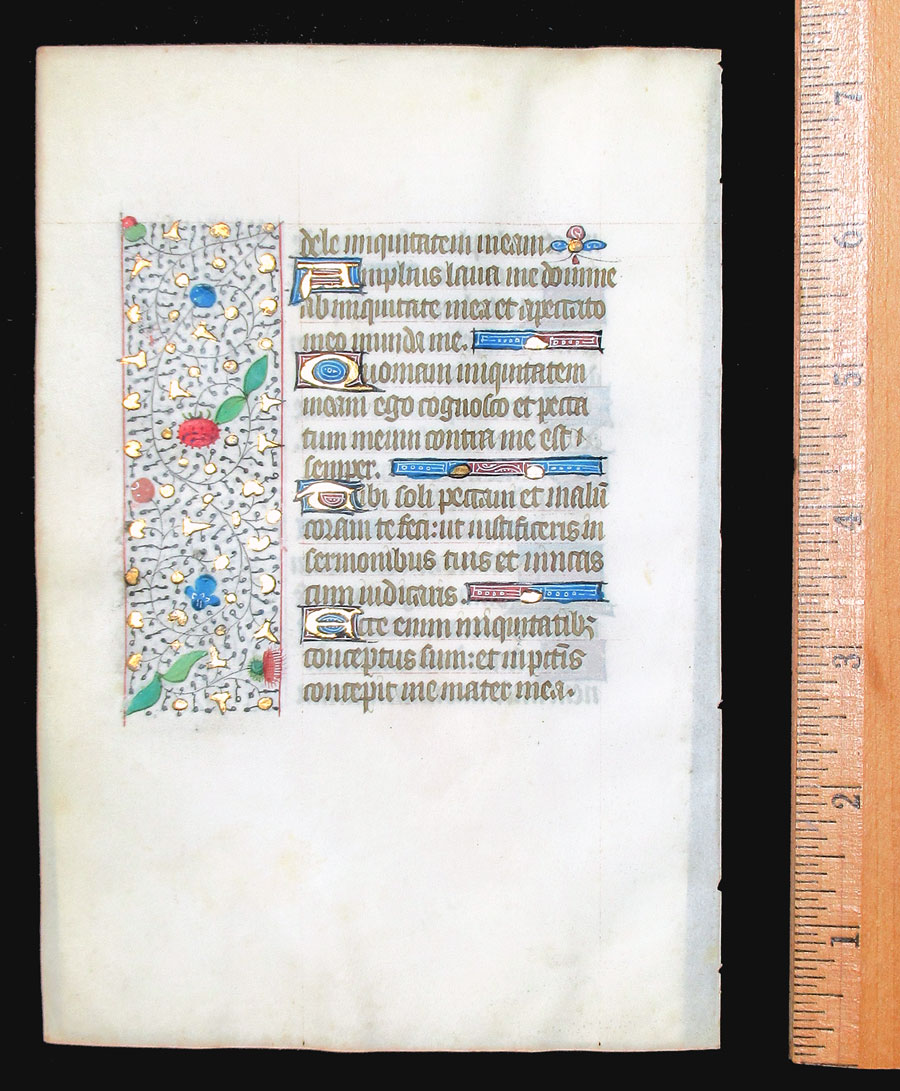 dele iniquitatem meam.
Amplius laua me domine
ab iniquitate mea et a peccato
meo munda me.
Quoniam iniquitatem
meam ego cognosco et pecca
tum meum contra me est
semper.
Tibi soli peccaui et malū
coram te feci: ut iustificeris in
sermonibus tuis et uincas
cum iudicaris.
Ecce enim iniquitatibꝫ
conceptus sum: et in pctīs
concepit me mater mea.
7
6
5
4
3
2
1